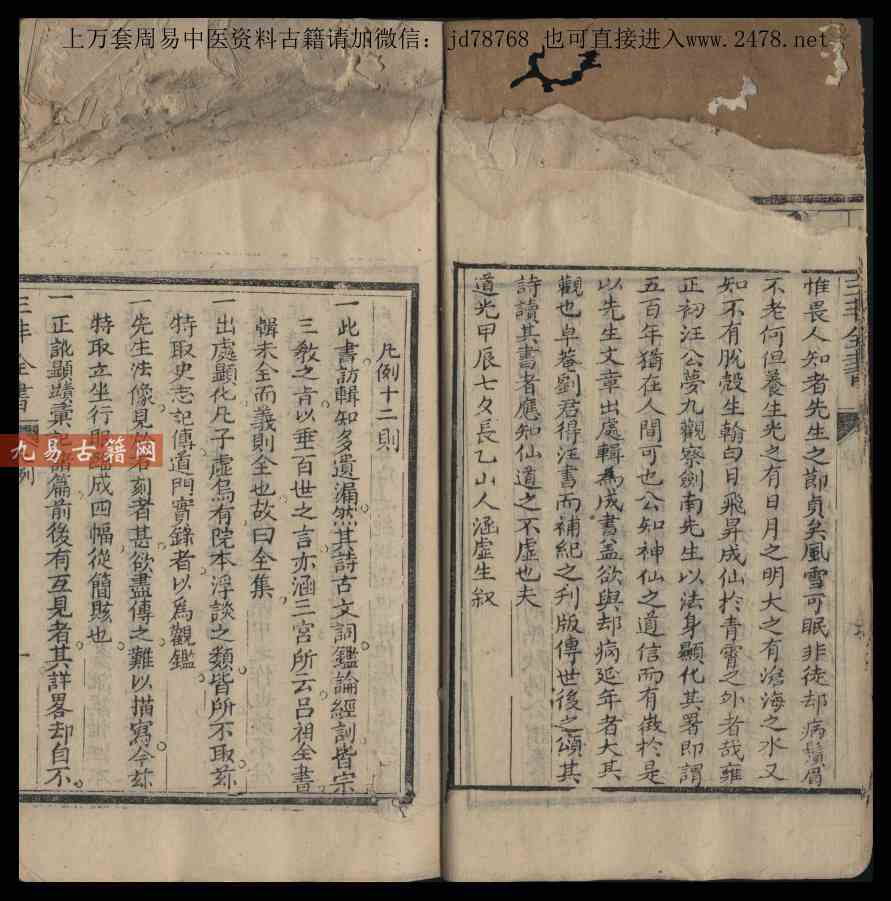 上万套周易中医资料古籍请加微信：jd78768 也可直接进入www.2478.net
惟畏人知者先生之節貞矣風雪可眠非徒却病鬚眉
不老何但養生光之有日月之明大之有滄海之水又
知不有脫殼生翰白日飛昇成仙於青霄之外者哉雍
正初汪公夢九觀察劍南先生以法身顯化其署即謂
五百年猶在人間可也公知神仙之道信而有徵於是
以先生文章出處輯為成書蓋欲與却病延年者大其
觀也卓菴劉君得汪書而補紀之刊版傳世後之頌其
詩讀其書者應知仙道之不虛也夫
道光甲辰七夕長乙山人涵虛生叙
三丰全書
凡例十二則
一此書訪輯知多遺漏然其詩古文詞鑑論經訓皆宗
三教之肯以垂百世之言亦涵三宮所云呂祖全書
輯未全而義則全也故曰全集
一出處顯化凡子虛烏有院本浮談之類皆所不取茲
特取史志記傳道門實錄者以為觀鑑
一先生法像見名刻者甚欲盡傳之難以描寫今茲
特取立坐行成四幅從簡賅也
一正訛顯蹟彙諸篇前後有互見者其詳畧却自不
三丰全書
例
一
九易古籍网